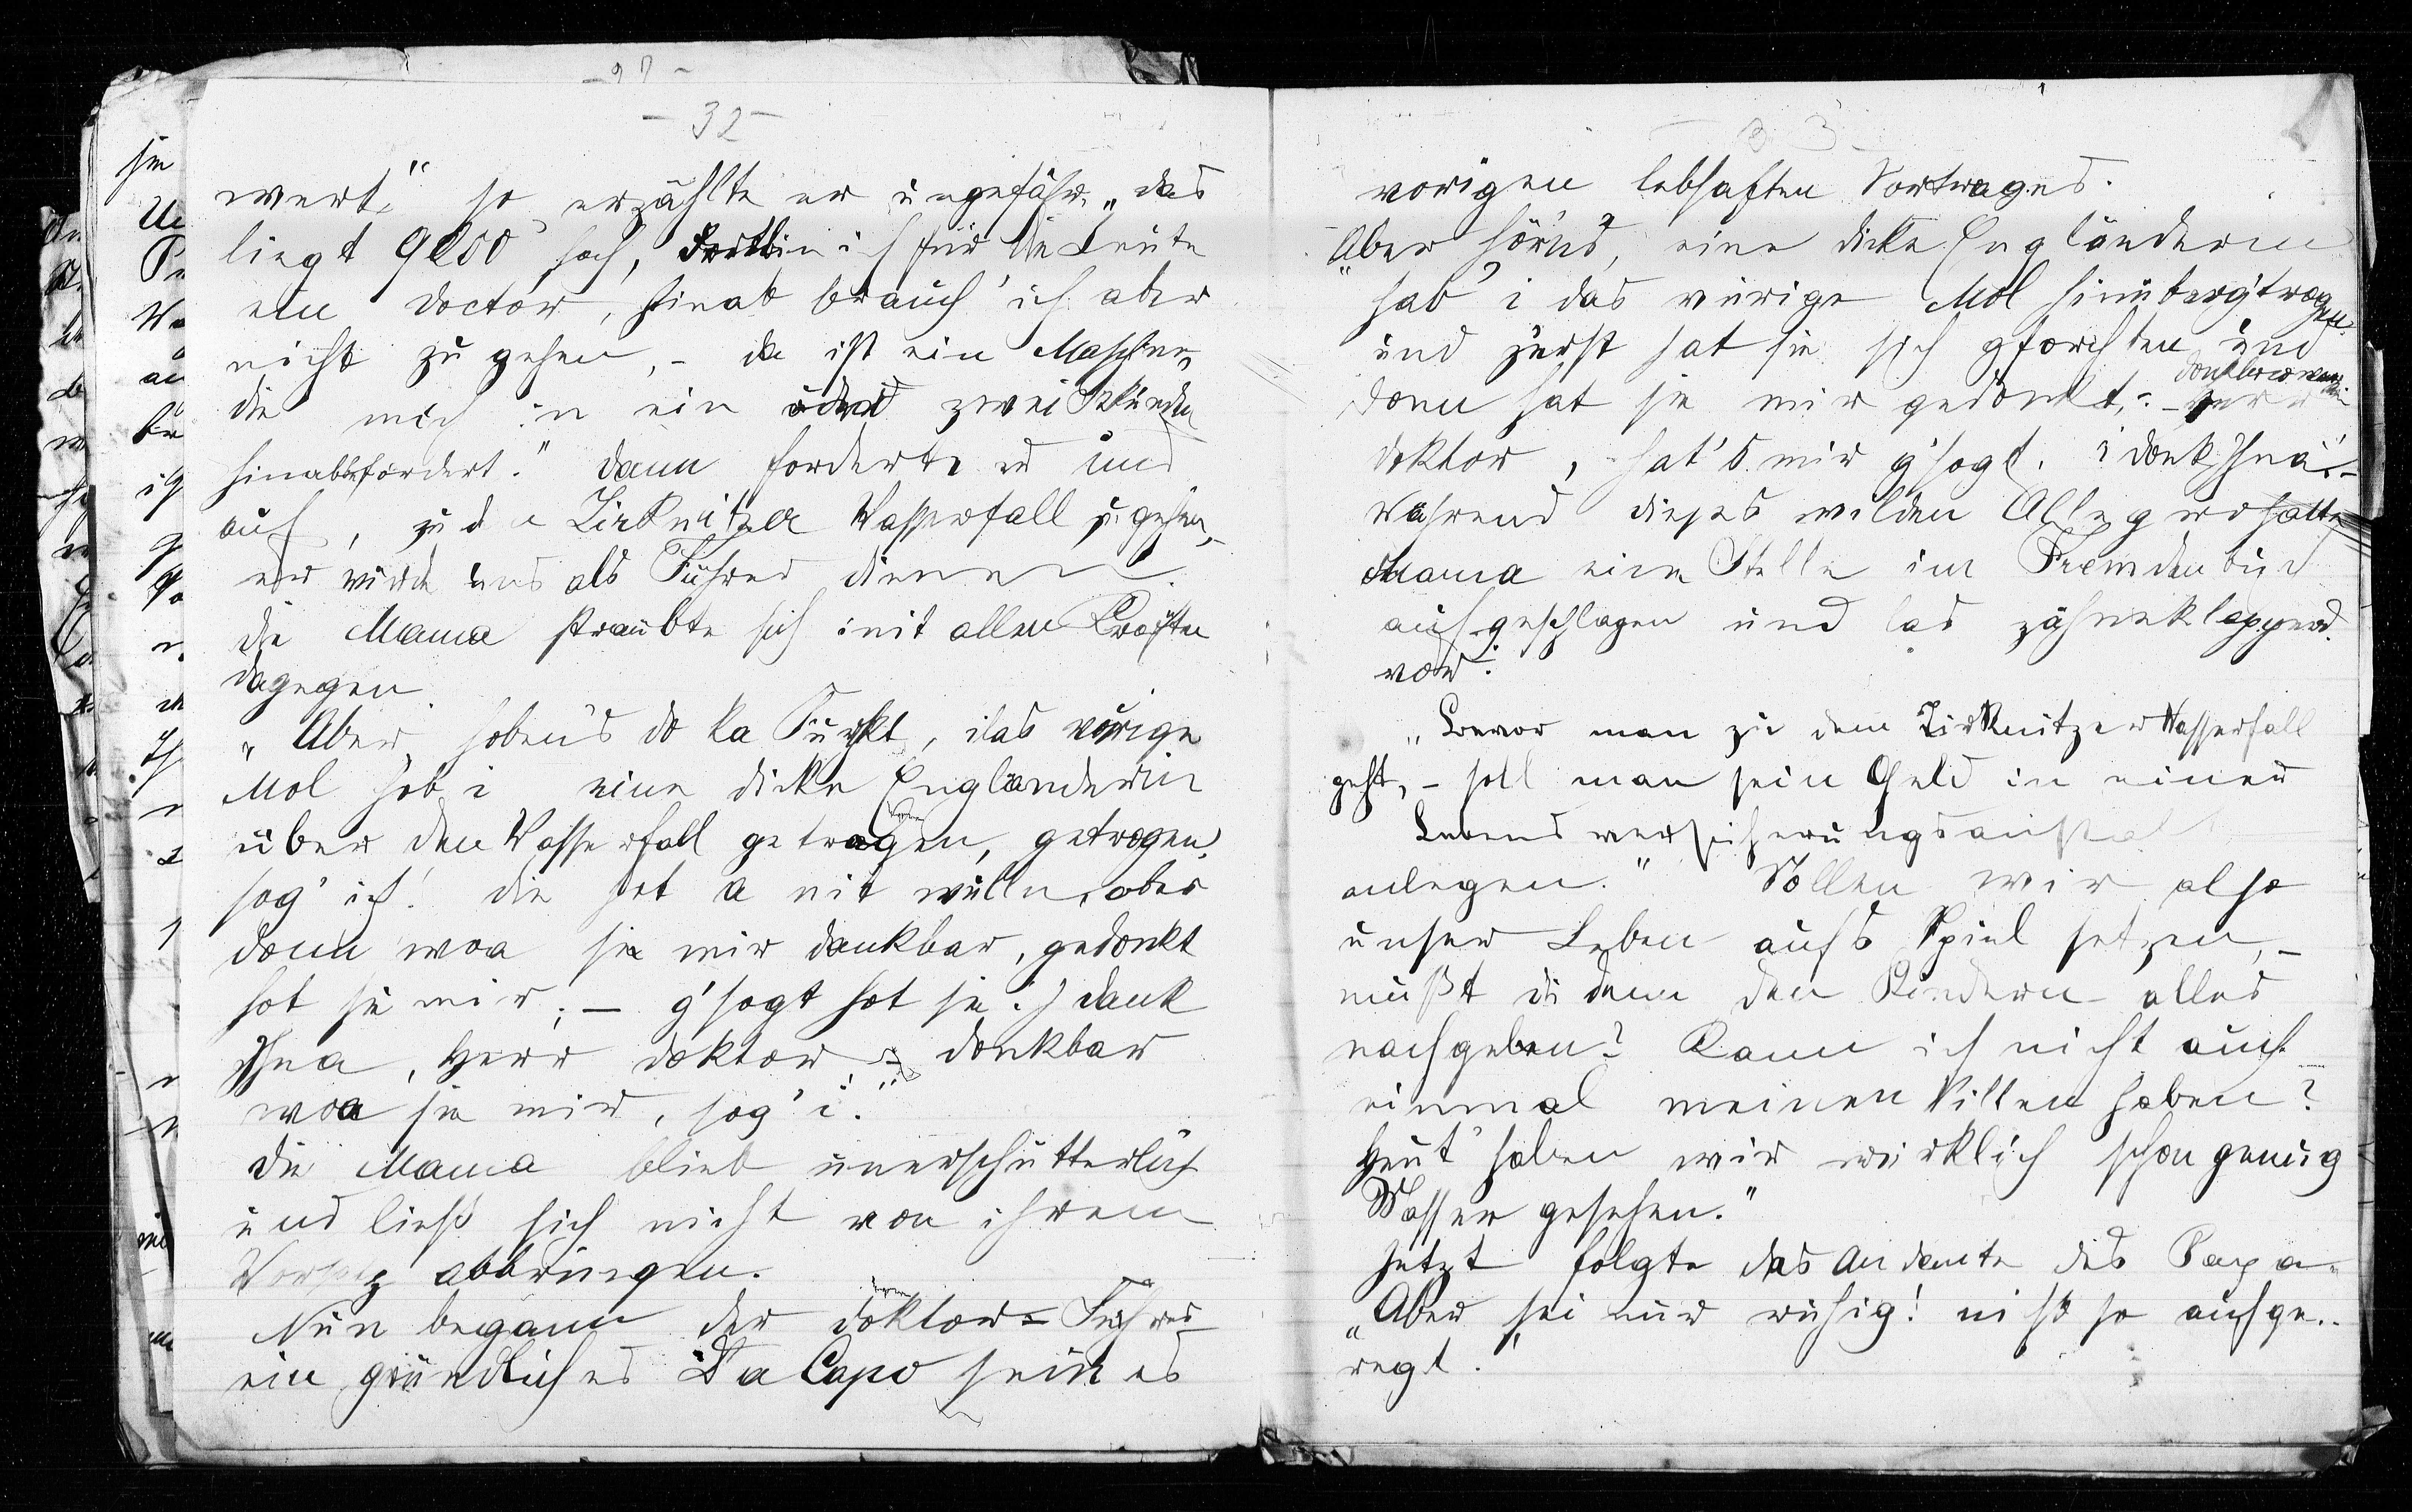 - 32 -
wert," so erzählte er ungefähr, „das
liegt 9200' hoch, dort bin ich für die Leute
ein Doctor, hinab brauch' ich aber
nicht zu gehen, – da ist ein Maschine,
die mich in ein oder zwei Stunden
hinabbefördert." Dann forderte er uns
auf, zu dem Zirknitzer Wasserfall zu gehen,
er würde uns als Führer dienen.
Die Mama sträubte sich mit allen Kräften
dagegen.
„Aber hoben's do ka Furcht, das vurige
Mol hob i eine dicke Engländerin
über den Wasserfall getragen, getrogen,
sog' ich! die hot a nit wulln, ober
donn woa sie mir dankbar, gedonkt
hot sie mir; – g'sogt hot sie: I dank
Ihna, Herr Doktor, donkbar
woa sie mir, sog' i."
Die Mama blieb unerschütterlich
und ließ sich nicht von ihrem
Vorsatz abbringen.
Nun begann der Doktor-Führer
ein gründliches Da Capo seines
33
vorigen lebhaften Vortrages.
„Aber hörns, eine dicke Engländerin
hab' i das vurige Mol hinüberg'trogen
und zurst hat sie sich gforchten und
donn hat sie mir gedonkt, – Herr
Doktor, hat's mir g'sogt. i donk Ihna. –
Während dieses wilden Allegro hatte
Mama eine Stelle im Fremdenbuch
aufgeschlagen und las zähneklappernd
vor:
„Bevor man zu dem Zirknitzer Wasserfall
geht, – soll man sein Geld in einer
Lebensversicherungsanstalt
anlegen." Sollen wir also
unser Leben aufs Spiel setzen, –
mußt du denn den Kindern alles
nachgeben? Kann ich nicht auch
einmal meinen Willen haben?
Heut' haben wir wirklich schon genug
Wasser gesehen."
Jetzt folgte das Andante des Papa.
„Aber sei nur ruhig! nicht so aufge-
regt.